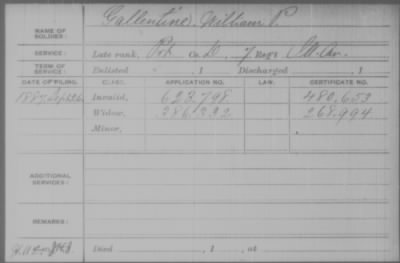 Gallentine, William P.
NAME OF SOLDIER:
SERVICE: Late rank, Pvt Co. D, 7 Reg't Ill. Cav.
TERM OF SERVICE: Enlisted , 1 Discharged , 1
DATE OF FILING. CLASS. APPLICATION NO. LAW. CERTIFICATE NO.
1887, Sept 26 Invalid, 623,798 480,653
Widow, 386,232 268,994
Minor,
ADDITIONAL SERVICES:
REMARKS:
Died , 1 , at